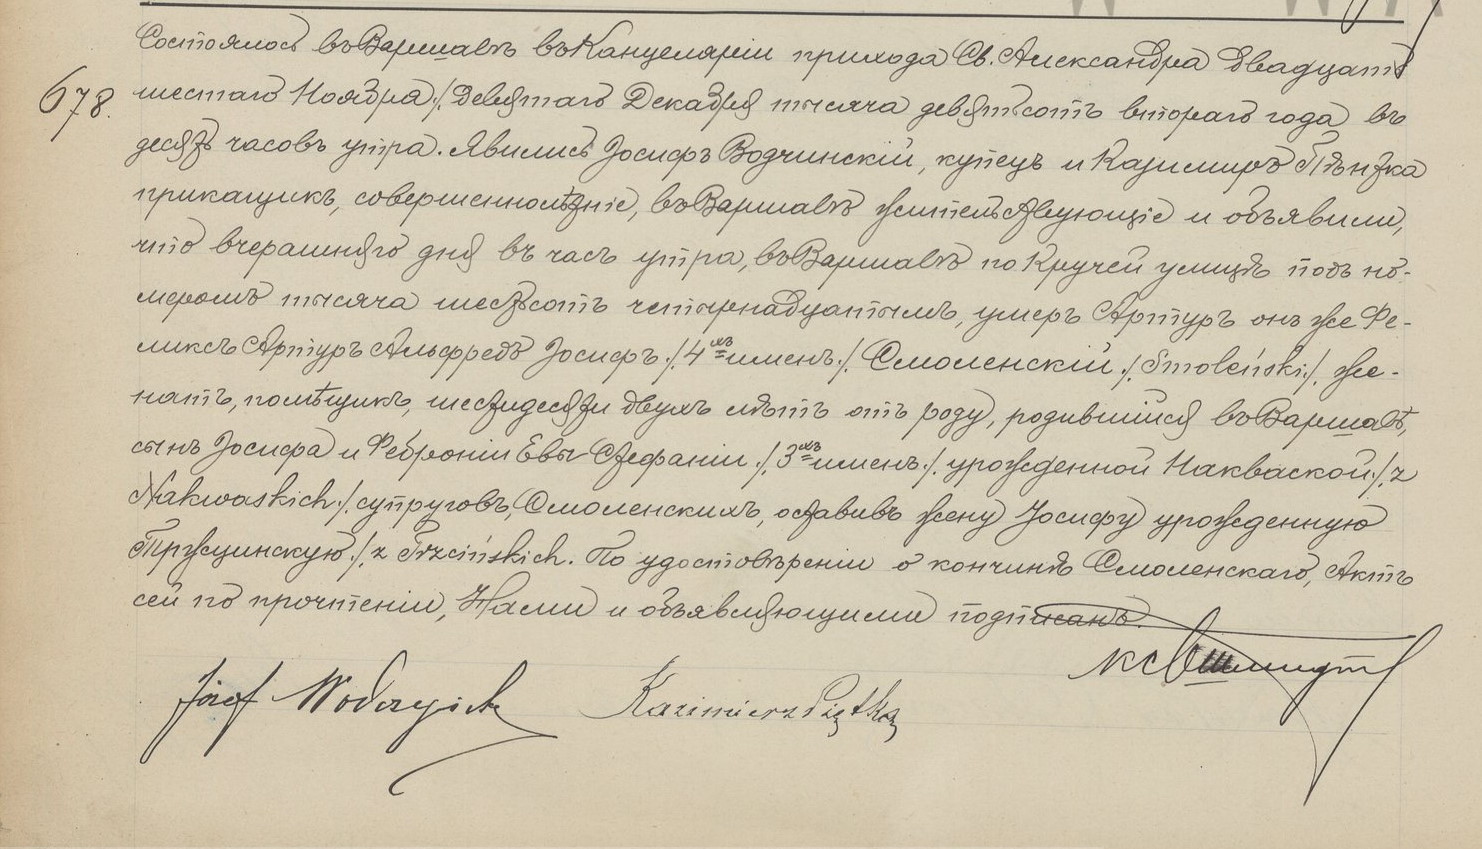 Состоялось въ Варшавѣ въ Канцеляріи прихода Св. Александра двадцать
678.
шестаго Ноября /. Девятаго Декабря тысяча девятьсотъ втораго года въ
десять часовъ утра. Явились Іосифъ Водчинскій, купецъ и Казимиръ Пѣнтка
прикащикъ, совершеннолѣтніе, въ Варшавѣ жительствующіе и объявили,
что вчерашняго дня въ часъ утра, въ Варшавѣ по Кручей улицѣ подъ но-
меромъ тысяча шестьсотъ четырнадцатымъ, умеръ Артуръ онъ же Фе-
ликсъ Артуръ Альфредъ Іосифъ ./. 4хъ именъ ./. Смоленскій ./. Smoleński ./. же-
натъ, помѣщикъ, шестидесяти двухъ лѣтъ отъ роду, родившійся въ Варшавѣ,
сынъ Іосифа и Феброніи Евы Стефаніи ./. 3хъ именъ ./. урожденной Накваской ./. z
Nakwaskich ./. супруговъ, Смоленскихъ, оставивъ жену Іосифу урожденную
Тржцинскую ./. z Trzcińskich. По удостовѣреніи о кончинѣ Смоленскаго, Актъ
сей по прочтеніи, Нами и объявляющими подписанъ.
Józef
Kazimierz Piętka